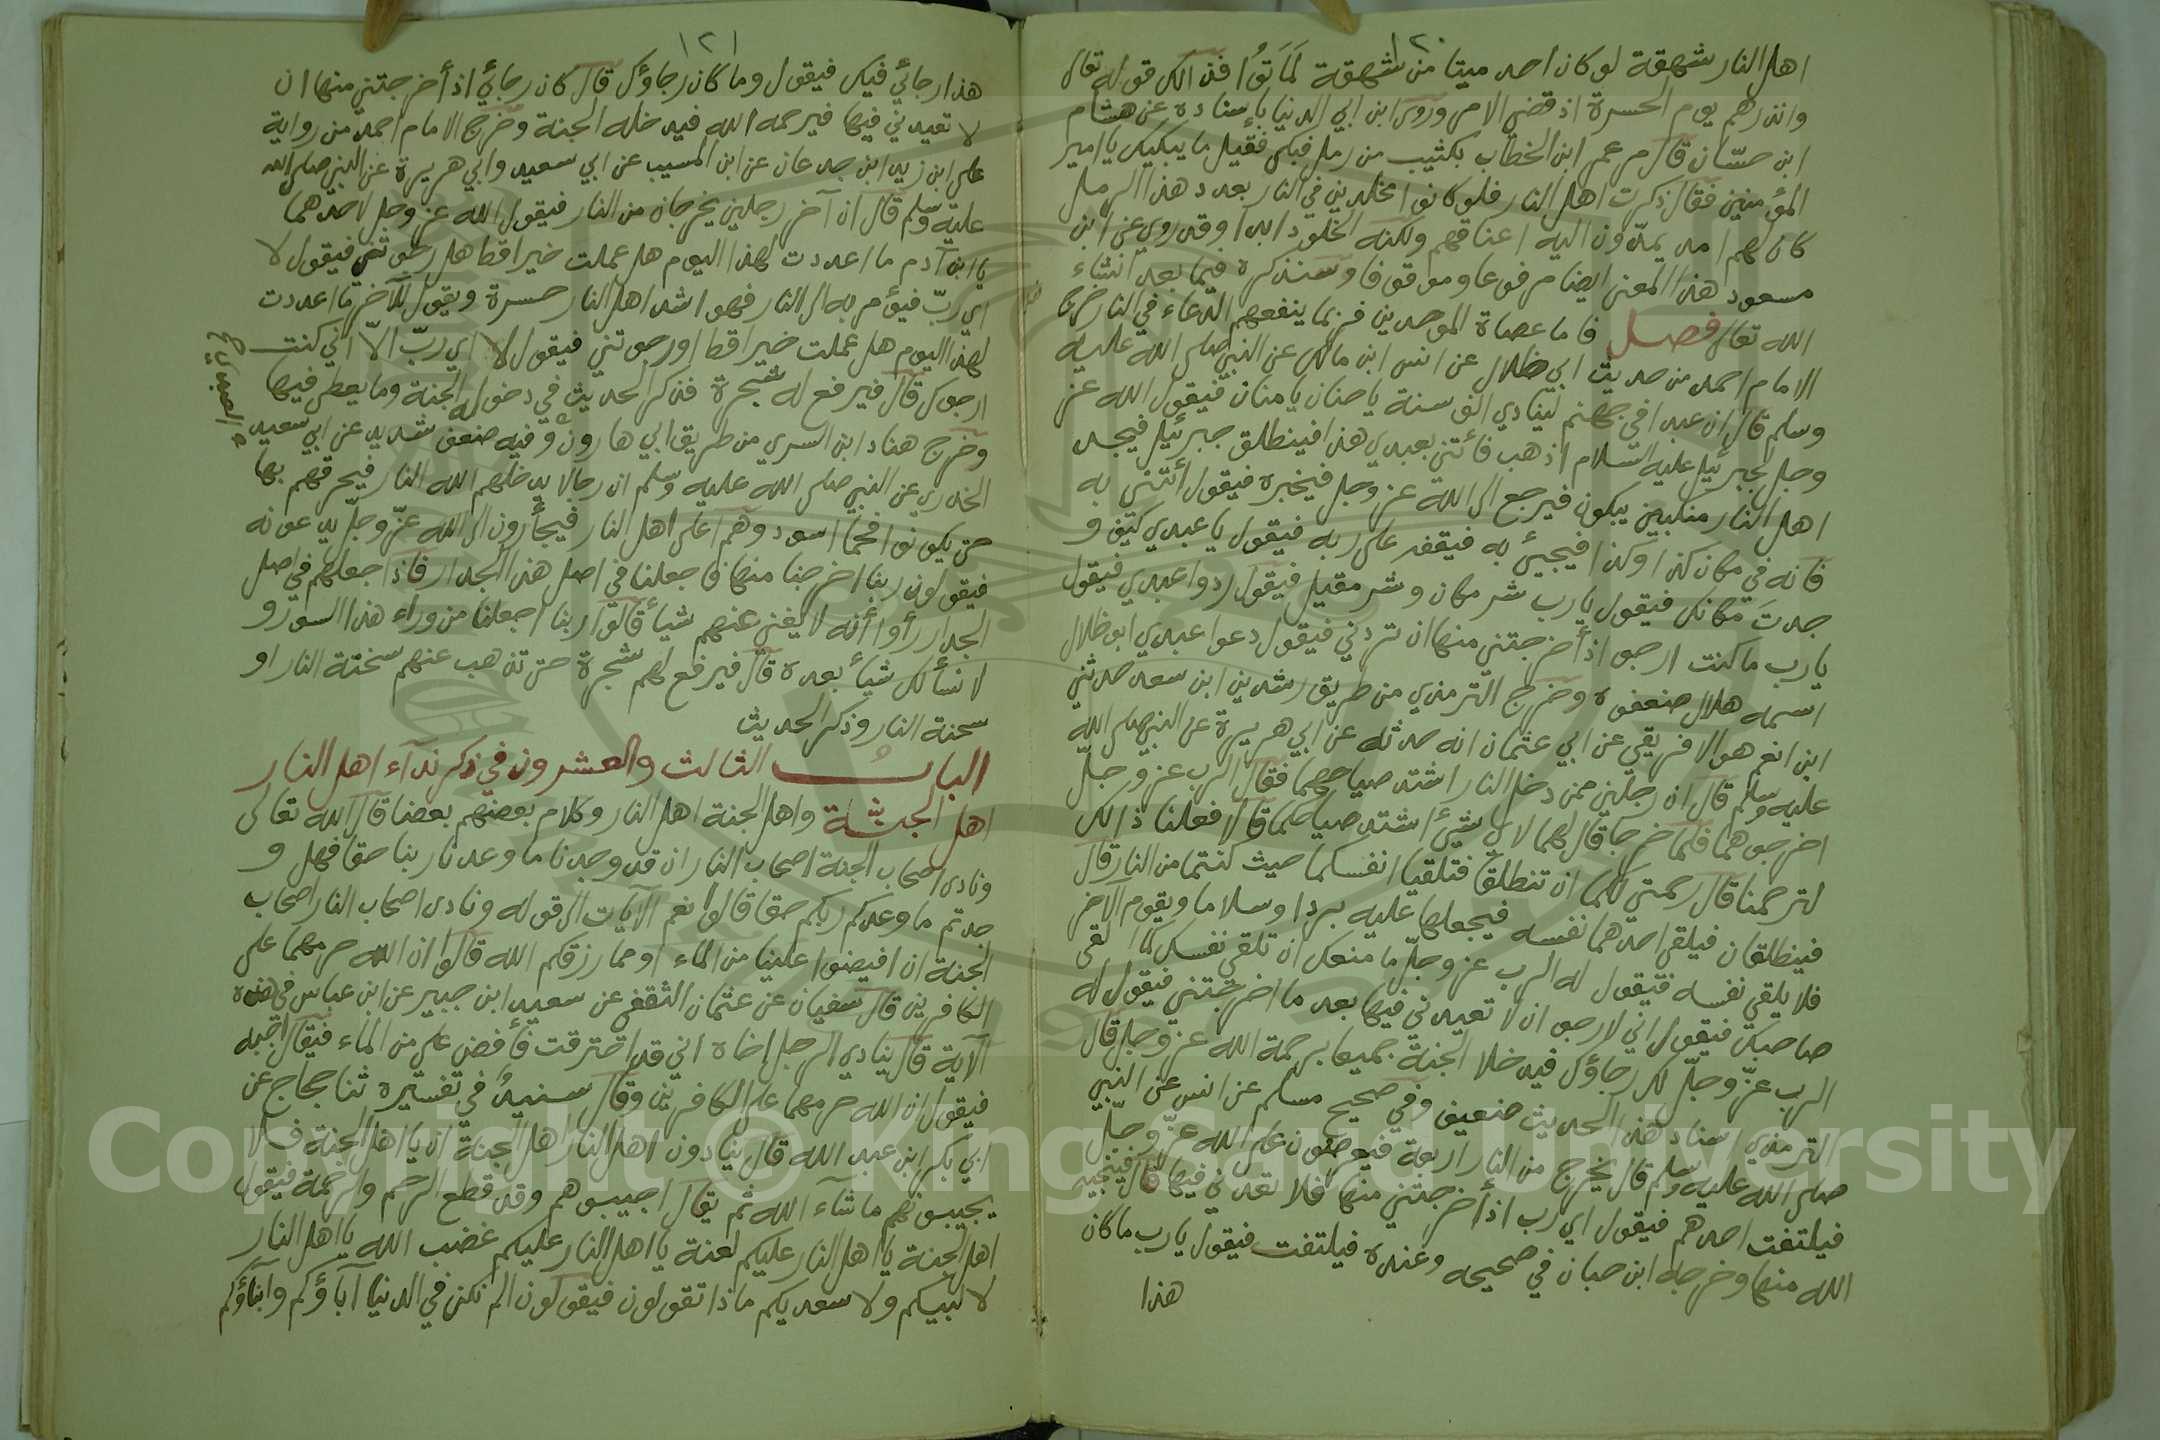 ١٢٠
اهل النار شهقة لو كان احد ميتا من شهقة لَمَاتوُا فذالك قوله تعالى
وانذرهم يوم الحسرة اذ قضي الامر وروى ابن ابي الدنيا باسناده عن هشام
ابن حسّان قال مر عمر ابن الخطاب بكثيب من رمل فبكى فقيل ما يبكيك يا امير
المؤمنين فقال ذكرت اهل النار فلو كانوا مخلدين في النار بعدد هذا الرمل
كان لهم امد يمدّون اليه اعناقهم ولكنه الخلود ابدا وقد روي عن ابن
مسعود هذا المعنى ايضا مرفوعا وموقوفا وسنذكره فيما بعد انشاء
الله تعالى فصل فاما عصاة الموحدين فربما ينفعهم الدعاء في النار خرج
الامام احمد من حديث ابي ظلال عن انس ابن مالك عن النبي صلى الله عليه
وسلم قال ان عبدا في جهنم لينادي الف سنة يا حنان يا منان فيقول الله عز
وجل لجبرئيل عليه السلام اذهب فأتني بعبدي هذا فينطلق جبرئيل فيجد
اهل النار منكبين يبكون فيرجع الى الله عز وجل فيخبره فيقول أئتني به
فانه في مكان كذا وكذا فيجيئ به فيقفه على ربه فيقول يا عبدي كيف و
جدت مكانك فيقول يا رب شر مكان وشر مقيل فيقول ردوا عبدي فيقول
يا رب ما كنت ارجوا اذ أخرجتني منها ان تردني فيقول دعوا عبدي ابو ظلال
اسمه هلال ضعفوه وخرج الترمذي من طريق رشدين ابن سعد حدثني
ابن انعم هو الافريقي عن ابي عثمان انه حدثه عن ابي هريرة عن النبي صلى الله
عليه وسلم قال ان رجلين ممن دخل النار اشتد صياحهما فقال الرب عز وجل
اخرجوهما فلما خرجا قال لهما لاي شيئ اشتد صياحكما قالا فعلنا ذالك
لترحمنا قال رحمتي لكما ان تنطلقا فتلقيا انفسكما حيث كنتما من النار قال
فينطلقان فيلقي احدهما نفسه فيجعلها عليه بردا وسلاما ويقوم الآخر
فلا يلقي نفسه فيقول له الرب عز وجل ما منعك ان تلقي نفسك كما القى
صاحبك فيقول اني لارجوا ان لا تعيدني فيها بعد ما اخرجتني فيقول له
الرب عزّ وجلّ لك رجاؤك فيدخلا الجنة جميعا برحمة الله عز وجل قال
الترمذي اسناد هذا الحديث ضعيف وفي صحيح مسلم عن انس عن النبي
صلى الله عليه وسلم قال يخرج من النار اربعة فيعرضون على الله عزّ وجلّ
فيلتفت احدهم فيقول اي رب اذ أخرجتني منها فلا تعدني فيها قال فينجيه
الله منها وخرجه ابن حبان في صحيحه وعنده فيلتفت فيقول يا رب ما كان
هذا
١٢١
هذا رجائي فيك فيقول وما كان رجاؤك قال كان رجائي اذ أخرجتني منها ان
لا تعيدني فيها فيرحمه الله فيدخله الجنة وخرج الامام احمد من رواية
علي ابن زيد ابن جدعان عن ابن المسيب عن ابي سعيد وابي هريرة عن النبي صلى الله
عليه وسلم قال ان آخر رجلين يخرجان من النار فيقول الله عز وجل لاحدهما
يا ابن آدم ما اعددت لهذا اليوم هل عملت خيرا قط هل رجوتني فيقول لا
اي ربّ فيؤمر به الى النار فهو اشد اهل النار حسرة ويقول للآخر ما اعددت
لهذا اليوم هل عملت خيرا قط او رجوتني فيقول لا اي ربّ الاّ اني كنت
ارجوك قال فيرفع له شجرة فذكر الحديث في دخول الجنة وما يعطى فيها
وخرج هناد ابن السري من طريق ابي هارون وفيه ضعف شديد عن ابي سعيد
العبدي صح
الخدري عن النبي صلى الله عليه وسلم ان رجالا يدخلهم الله النار فيحرقهم بها
حتى يكونوا فحما اسود وهم اعلى اهل النار فيجأرون الى الله عزّ وجلّ يدعونه
فيقولون ربنا اخرجنا منها فاجعلنا في اصل هذا الجدار فاذا جعلهم في اصل
الجدار رأوا أنه لا يغني عنهم شيأ قالوا ربنا اجعلنا من وراء هذا السور و
لا نسألك شيأ بعده قال فيرفع لهم شجرة حتى تذهب عنهم سخنة النار او
سحنة النار وذكر الحديث
الباب الثالث والعشرون في ذكر نداء اهل النار
اهل الجنّة واهل الجنة اهل النار وكلام بعضهم بعضا قال الله تعالى
ونادى اصحاب الجنة اصحاب النار ان قد وجدنا ما وعدنا ربنا حقا فهل و
جدتم ما وعدكم ربكم حقا قالوا نعم الآيات الى قوله ونادى اصحاب النار اصحاب
الجنة ان افيضوا علينا من الماء او مما رزقكم الله قالوا ان الله حرمهما على
الكافرين قال سفيان عن عثمان الثقفي عن سعيد ابن جبير عن ابن عباس في هذه
الآية قال ينادي الرجل اخاه اني قد احترقت فأفض علي من الماء فيقال اجبه
فيقول ان الله حرمهما على الكافرين وقال سنيد في تفسيره ثنا حجاج عن
ابي بكر ابن عبد الله قال ينادون اهل النار اهل الجنة ان يا اهل الجنة فلا
يجيبونهم ما شآء الله ثم يقال اجيبوهم وقد قطع الرحم والرحمة فيقول
اهل الجنة يا اهل النار عليكم لعنة يا اهل النار عليكم غضب الله يا اهل النار
لا لبيكم ولا سعديكم ماذا تقولون فيقولون الم نكن في الدنيا آباؤكم وابناؤكم
Copyright © King Saud University